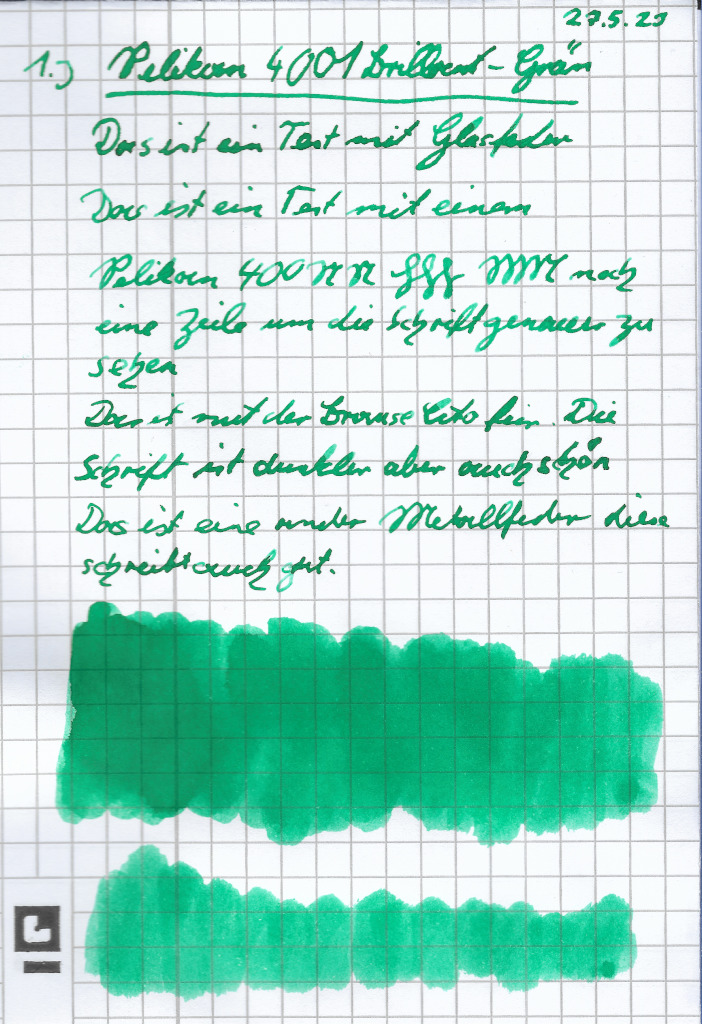 27.5.23
1.) Pelikan 4001 Brillant-Grün
Das ist ein Test mit Glasfeder
Das ist ein Test mit einem
Pelikan 400 NN fff MMM noch
eine Zeile um die Schrift genauer zu
sehen
Das ist mit der Brause Cito fein. Die
Schrift ist dunkler aber auch schön
Das ist eine andere Metallfeder diese
schreibt auch gut.